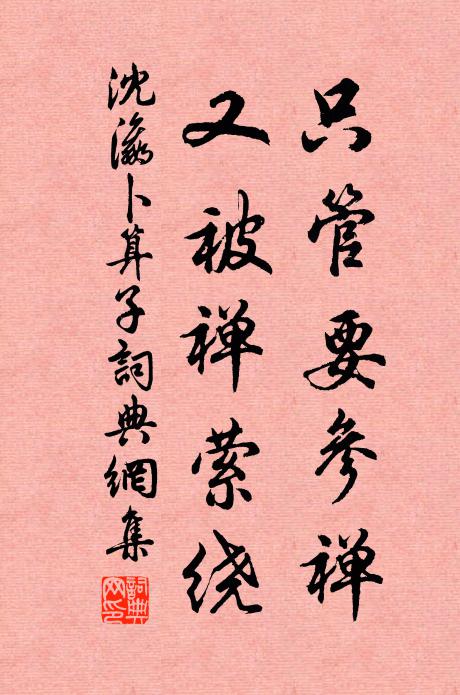 只管要参禅
又被禅萦绕
沈瀛卜算子詞典網集
詞典網印